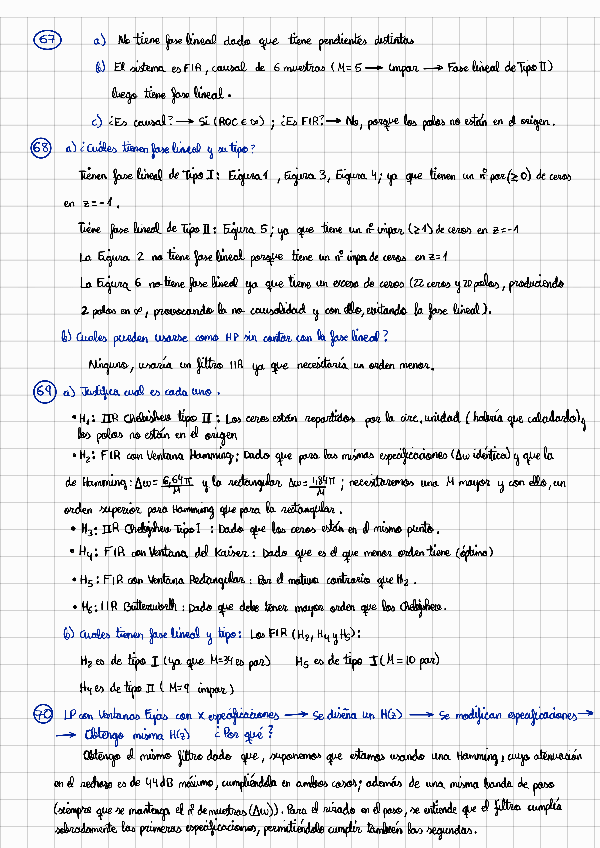 67 a) No tiene fase lineal dado que tiene pendientes distintas
b) El sistema es FIR, causal de 6 muestras (M=5 → impar → Fase lineal de Tipo II)
luego tiene fase lineal.
c) ¿Es causal? → Si (ROC ∈ ∞) ; ¿Es FIR? → No, porque los polos no están en el origen.
68 a) ¿Cuáles tienen fase lineal y su tipo?
Tienen fase lineal de Tipo I: Figura 1, Figura 3, Figura 4; ya que tienen un nº par (≥0) de ceros
en z=-1.
Tiene fase lineal de Tipo II: Figura 5; ya que tiene un nº impar (≥1) de ceros en z=-1
La Figura 2 no tiene fase lineal porque tiene un nº impar de ceros en z=1
La Figura 6 no tiene fase lineal ya que tiene un exceso de ceros (22 ceros y 20 polos, produciendo
2 polos en ∞, provocando la no causalidad y con ello, evitando la fase lineal).
b) Cuales pueden usarse como HP sin contar con la fase lineal?
Ninguno, usaría un filtro IIR ya que necesitaría un orden menor.
69 a) Justifica cual es cada uno.
• H₁: IIR Chebishev tipo II: Los ceros están repartidos por la circ. unidad (habría que calcularlo) y
los polos no están en el origen
• H₂: FIR con Ventana Hamming; Dado que para las mismas especificaciones (Δω idéntica) y que la
de Hamming: Δω= 6,64π/M y la rectangular Δω= 1,84π/M ; necesitaremos una M mayor y con ello, un
orden superior para Hamming que para la rectangular.
• H₃: IIR Chebishev Tipo I: Dado que los ceros están en el mismo punto.
• H₄: FIR con Ventana del Kaiser: Dado que es el que menor orden tiene (óptimo)
• H₅: FIR con Ventana Rectangular: Por el motivo contrario que H₂.
• H₆: IIR Butterworth: Dado que debe tener mayor orden que los Chebishev.
b) Cuales tienen fase lineal y tipo: Los FIR (H₂, H₄ y H₅):
H₂ es de tipo I (ya que M=34 es par) H₅ es de tipo I (M=10 par)
H₄ es de tipo II (M=9 impar)
70 LP con Ventanas Fijas con X especificaciones → Se diseña un H(z) → Se modifican especificaciones →
→ Obtengo misma H(z) ¿Por qué?
Obtengo el mismo filtro dado que, suponemos que estamos usando una Hamming, cuya atenuación
en el rechazo es de 44 dB máximo, cumpliéndola en ambos casos; además de una misma banda de paso
(siempre que se mantenga el nº de muestras (Δω)). Para el rizado en el paso, se entiende que el filtro cumplía
sobradamente las primeras especificaciones, permitiéndolo cumplir también las segundas.